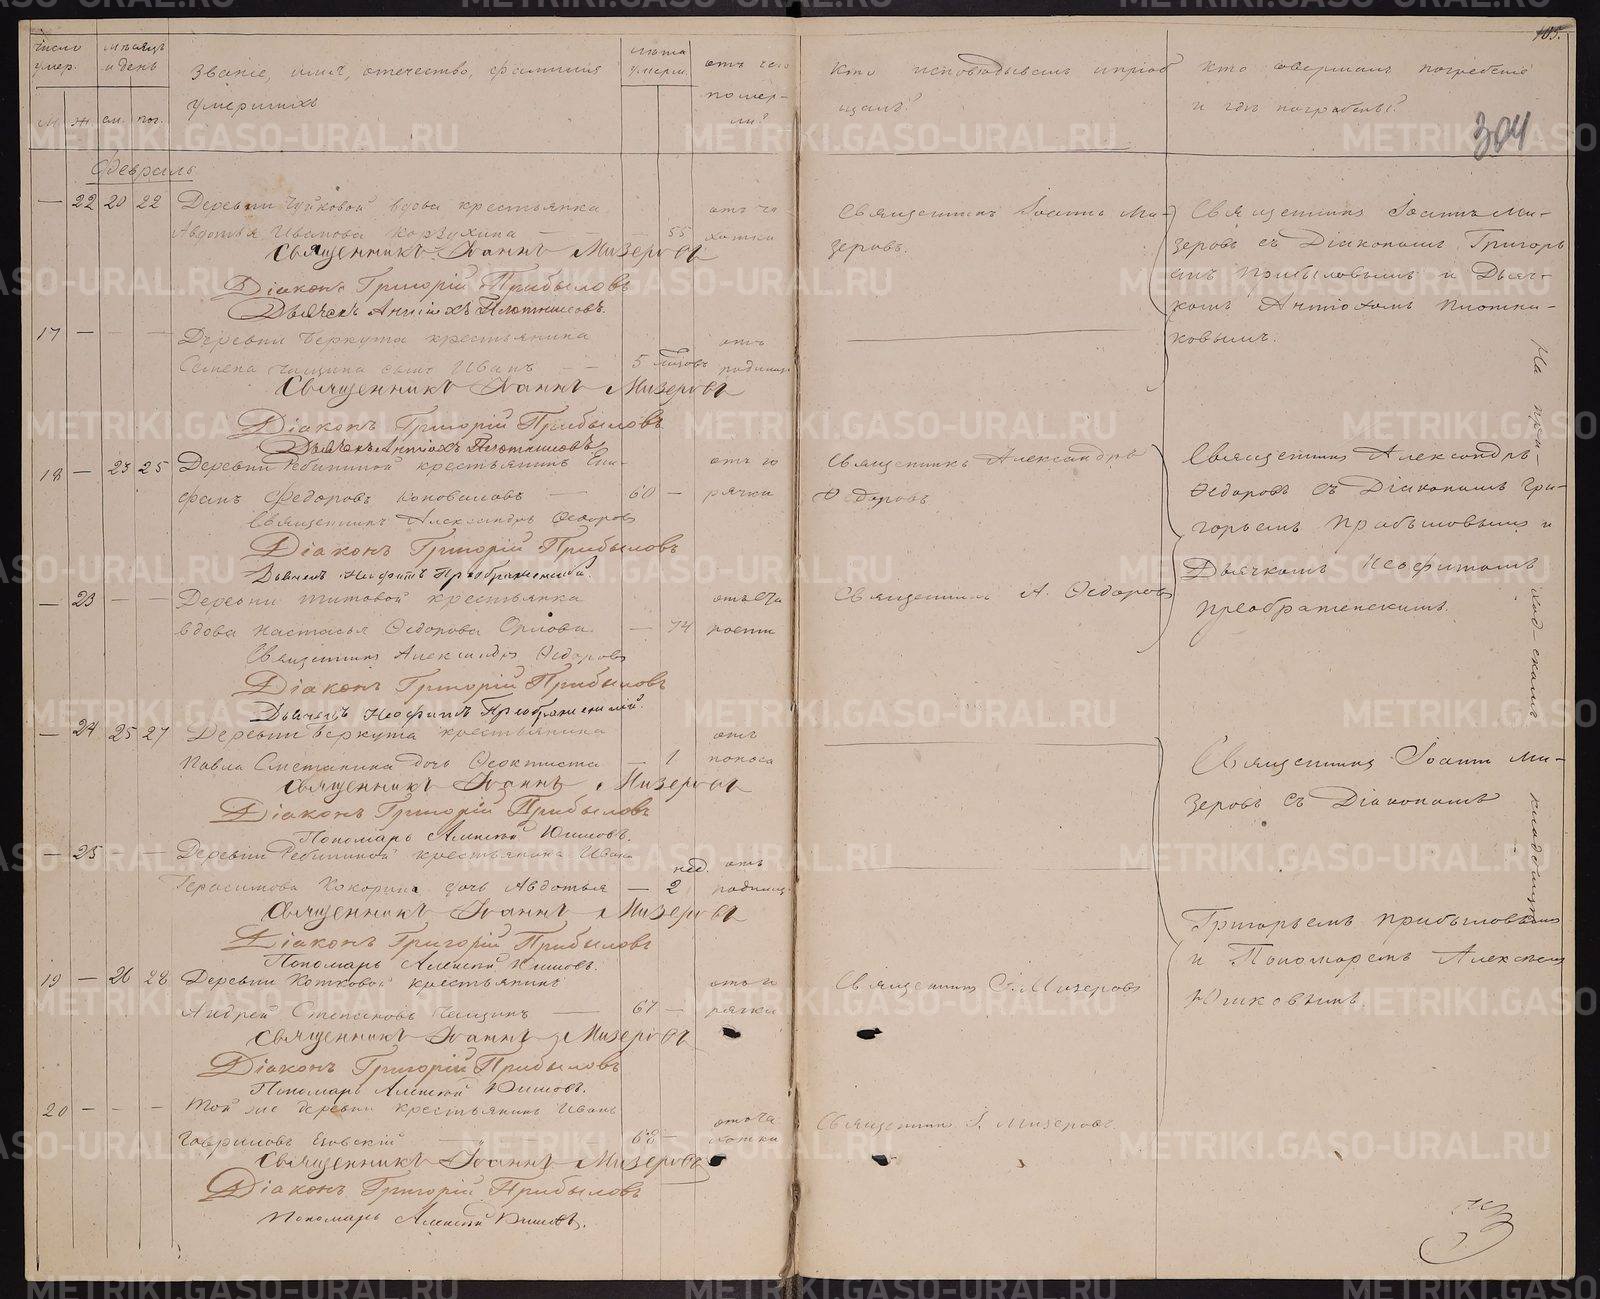 105.
304
Число умер.
Мѣсяцъ и день
Званіе, имя, отечество, фамилія умершихъ
Лѣта умерш.
отъ чего померли?
Кто исповѣдывалъ и пріобщалъ?
Кто совершалъ погребеніе и гдѣ погребены?
М. Ж. см. пог.
Февраль
— 22 20 22 Деревни Чуйковой вдова крестьянка
Авдотья Иванова Корзухина — — — 55 отъ чахотки
Священникъ Іоаннъ Мизеровъ
Діаконъ Григорій Прибыловъ
Дьячекъ Антіохъ Плотниковъ.
Священникъ Іоаннъ Мизеровъ.
Священникъ Іоаннъ Мизеровъ съ Діакономъ Григорьемъ Прибыловымъ и Дьячкомъ Антіохомъ Плотниковымъ.
17 — — — Деревни Беркута крестьянина
Семена сынъ Иванъ — — 5 отъ родимца
Священникъ Іоаннъ Мизеровъ
Діаконъ Григорій Прибыловъ
Дьячекъ Антіохъ Плотниковъ
18 — 23 25 Деревни Ребининой крестьянинъ Епифанъ Федоровъ Коноваловъ — 60 — отъ горячки
Священникъ Александръ Ѳедоровъ
Діаконъ Григорій Прибыловъ
Дьячекъ Неофитъ Преображенскій.
Священникъ Александръ Ѳедоровъ
Священникъ Александръ Ѳедоровъ съ Діакономъ Григорьемъ Прибыловымъ и Дьячкомъ Неофитомъ Преображенскимъ.
— 23 — — Деревни Титовой крестьянка
вдова Настасья Ѳедорова Орлова — 74 отъ старости
Священникъ Александръ Ѳедоровъ
Діаконъ Григорій Прибыловъ
Дьячекъ Неофитъ Преображенскій.
Священникъ А. Ѳедоровъ
— 24 25 27 Деревни Беркута крестьянина
Павла Сметанина дочь Ѳеоктиста — 1 отъ поноса
Священникъ Іоаннъ Мизеровъ
Діаконъ Григорій Прибыловъ
Пономарь Алексѣй Юшковъ.
Священникъ Іоаннъ Мизеровъ съ Діакономъ
Григорьемъ Прибыловымъ и Пономаремъ Алексѣемъ Юшковымъ.
— 25 — Деревни Ребининой крестьянина Ивана
Герасимова Кокорина дочь Авдотья — 2 нед. отъ родимца
Священникъ Іоаннъ Мизеровъ
Діаконъ Григорій Прибыловъ
Пономарь Алексѣй Юшковъ.
19 — 26 28 Деревни Котковой крестьянинъ
Андрей Степановъ — 67 — отъ горячки
Священникъ Іоаннъ Мизеровъ
Діаконъ Григорій Прибыловъ
Пономарь Алексѣй Юшковъ.
Священникъ І. Мизеровъ
20 — — — Той же деревни крестьянинъ Иванъ
Гавриловъ — 68 — отъ чахотки
Священникъ Іоаннъ Мизеровъ
Діаконъ Григорій Прибыловъ
Пономарь Алексѣй Юшковъ.
Священникъ І. Мизеровъ.
На приходскомъ кладбищѣ
METRIKI.GASO-URAL.RU